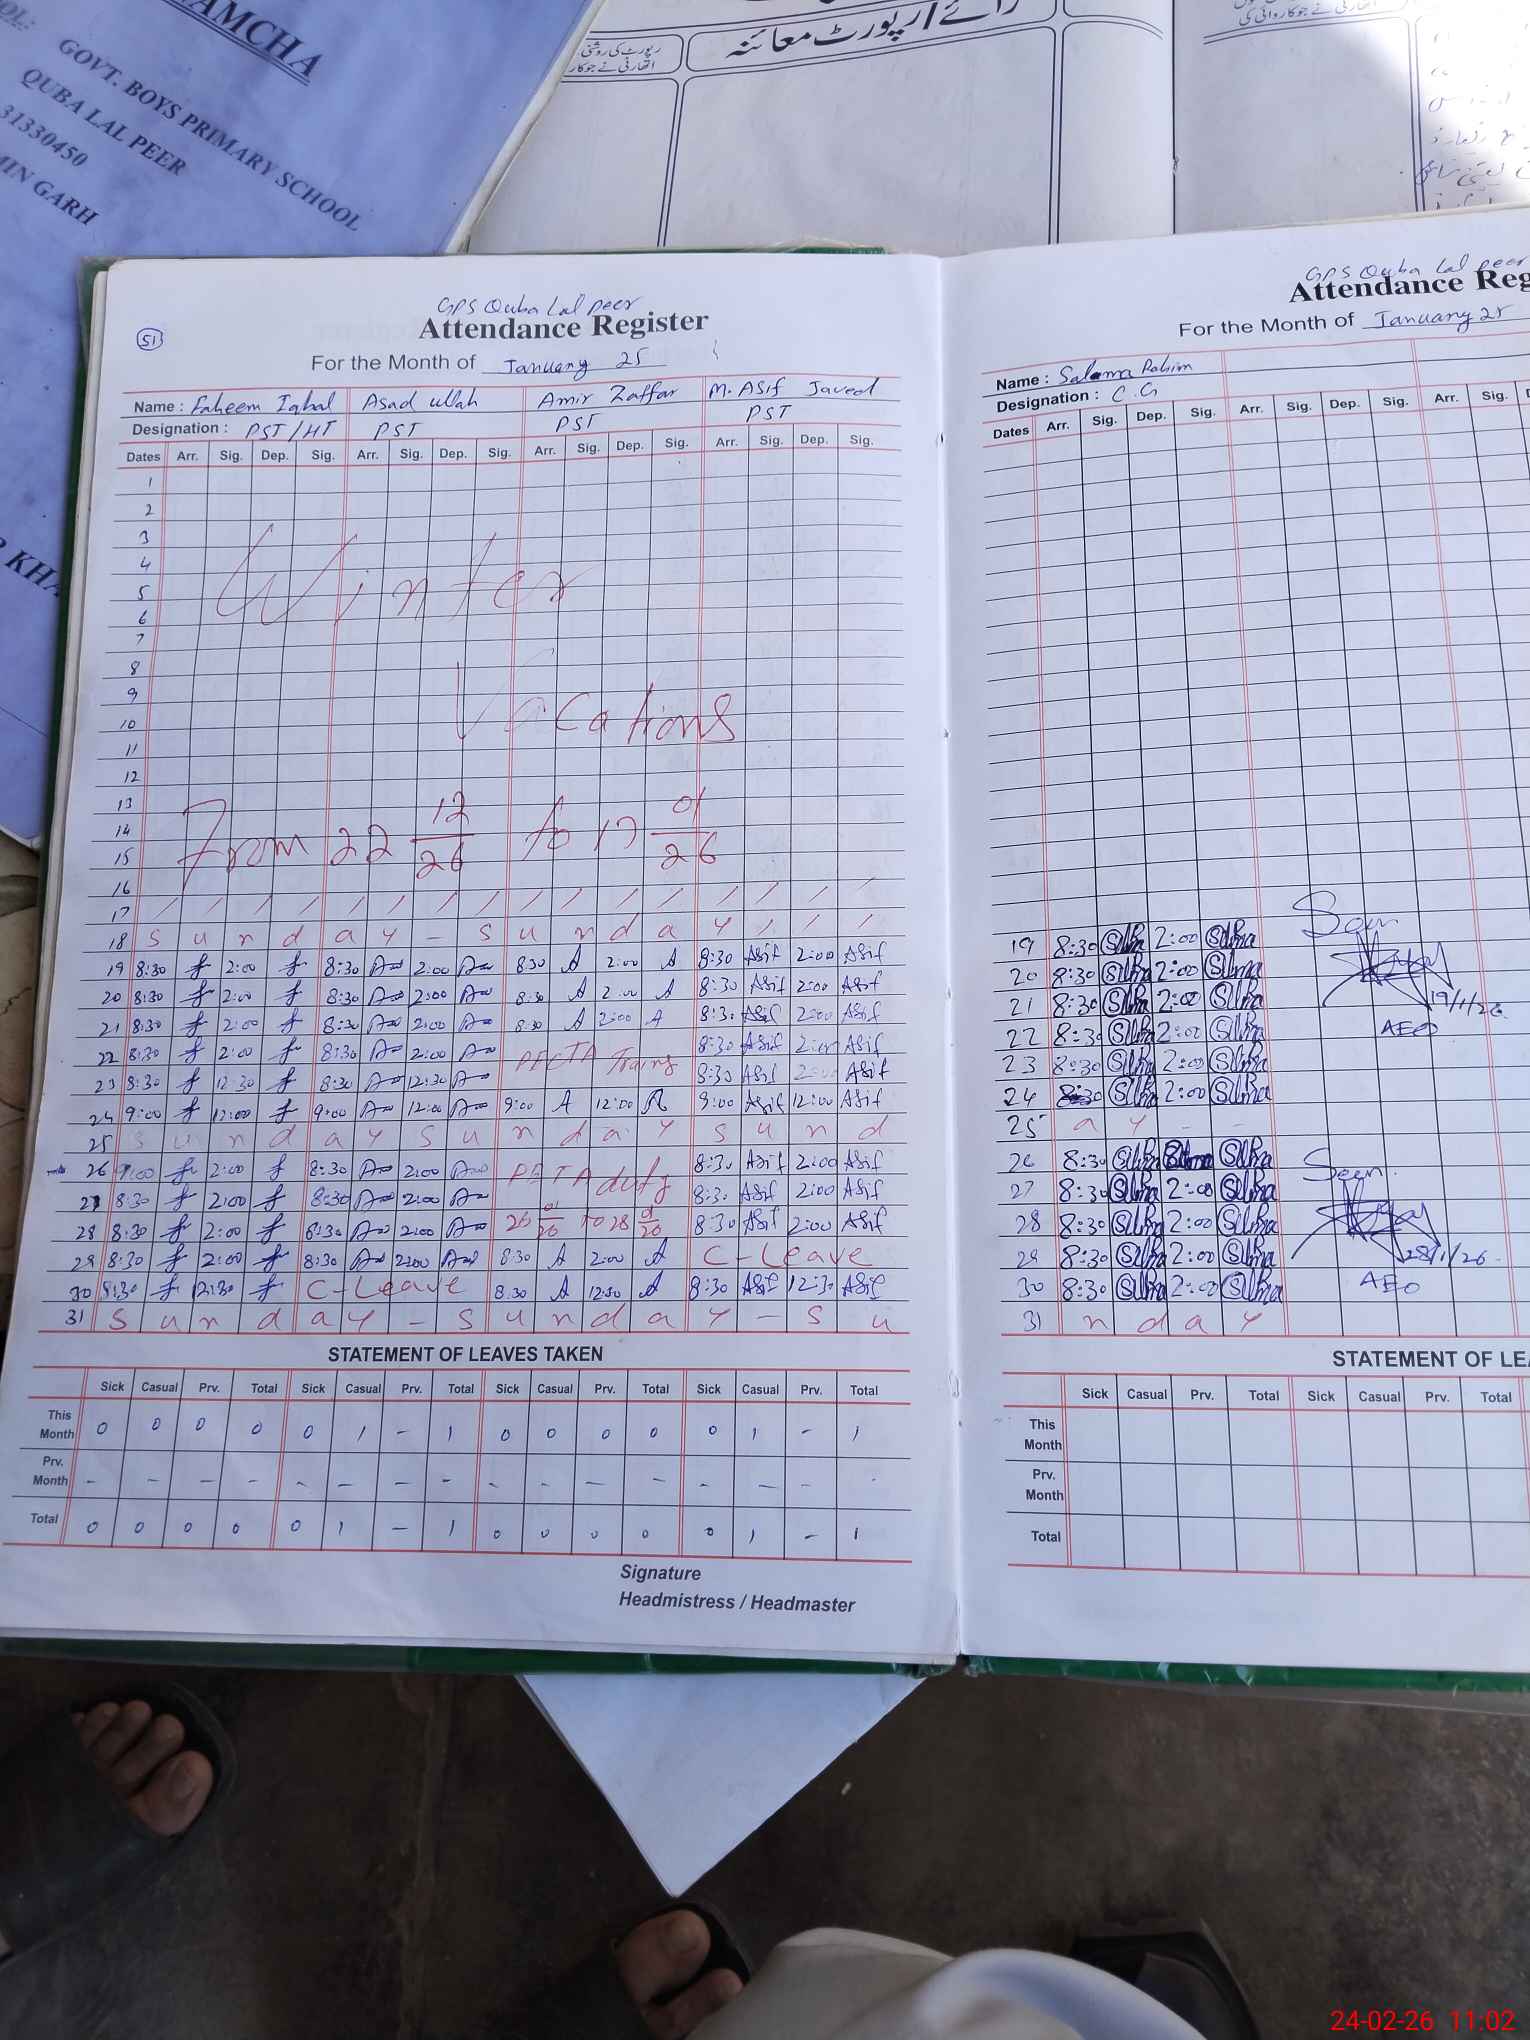 AMCHA
GOVT. BOYS PRIMARY SCHOOL
QUBA LAL PEER
31330450
MIN GARH
KHA
رائے / رپورٹ معائنہ
رپورٹ کی روشنی
GPS Quba Lal peer
Attendance Register
For the Month of January 25
51
Name : Faheem Iqbal Asad ullah Amir Zaffar M. Asif Javed
Designation : PST/HT PST PST PST
Dates Arr. Sig. Dep. Sig. Arr. Sig. Dep. Sig. Arr. Sig. Dep. Sig. Arr. Sig. Dep. Sig.
1
2
3
4
Winter
5
6
7
8
9
Vacations
10
11
12
13
14
From 22 12/26 to 17 01/26
15
16
17 / / / / / / / / / / / / / / / /
18 S u n d a y - S u n d a y / / /
19 8:30 f 2:00 f 8:30 2:00 8:30 A 2:00 A 8:30 Asif 2:00 Asif
20 8:30 f 2:00 f 8:30 2:00 8:30 A 2:00 A 8:30 Asif 2:00 Asif
21 8:30 f 2:00 f 8:30 2:00 8:30 A 2:00 A 8:30 Asif 2:00 Asif
22 8:30 f 2:00 f 8:30 2:00 PECTA 8:30 Asif 2:00 Asif
23 8:30 f 12:30 f 8:30 12:30 8:30 Asif 2:00 Asif
24 9:00 f 12:00 f 9:00 12:00 9:00 A 12:00 A 9:00 Asif 12:00 Asif
25 S u n d a y S u n d a y S u n d
26 9:00 f 2:00 f 8:30 2:00 duty 8:30 Asif 2:00 Asif
27 8:30 f 2:00 f 8:30 2:00 8:30 Asif 2:00 Asif
28 8:30 f 2:00 f 8:30 2:00 26 01/26 to 28 01/26 8:30 Asif 2:00 Asif
29 8:30 f 2:00 f 8:30 2:00 8:30 A 2:00 A C-Leave
30 8:30 f 12:30 f C-Leave 8:30 A 12:30 A 8:30 Asif 12:30 Asif
31 S u n d a y - S u n d a y - S u
STATEMENT OF LEAVES TAKEN
Sick Casual Prv. Total Sick Casual Prv. Total Sick Casual Prv. Total Sick Casual Prv. Total
This Month 0 0 0 0 0 1 - 1 0 0 0 0 0 1 - 1
Prv. Month - - - - - - - - - - - - - - - -
Total 0 0 0 0 0 1 - 1 0 0 0 0 0 1 - 1
Signature
Headmistress / Headmaster
GPS Quba Lal peer
Attendance Reg
For the Month of January 25
Name : Salma Rahim
Designation : C.G
Dates Arr. Sig. Dep. Sig. Arr. Sig. Dep. Sig. Arr. Sig.
19 8:30 Salma 2:00 Salma Seen
20 8:30 Salma 2:00 Salma
21 8:30 Salma 2:00 Salma 19/1/26
22 8:30 Salma 2:00 Salma AEO
23 8:30 Salma 2:00 Salma
24 8:30 Salma 2:00 Salma
25 a y - -
26 8:30 Salma Salma Seen
27 8:30 Salma 2:00 Salma
28 8:30 Salma 2:00 Salma
29 8:30 Salma 2:00 Salma 28/1/26
30 8:30 Salma 2:00 Salma AEO
31 n d a y
STATEMENT OF LEA
Sick Casual Prv. Total Sick Casual Prv. Total
This Month
Prv. Month
Total
24-02-26 11:02